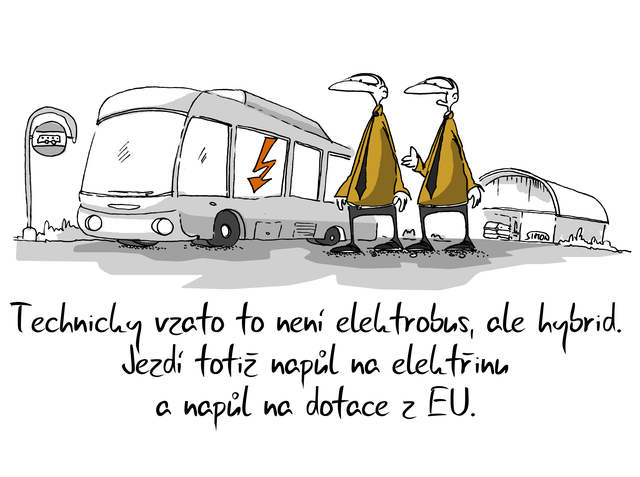 SIMON
Technicky vzato to není elektrobus, ale hybrid.
Jezdí totiž napůl na elektřinu
a napůl na dotace z EU.